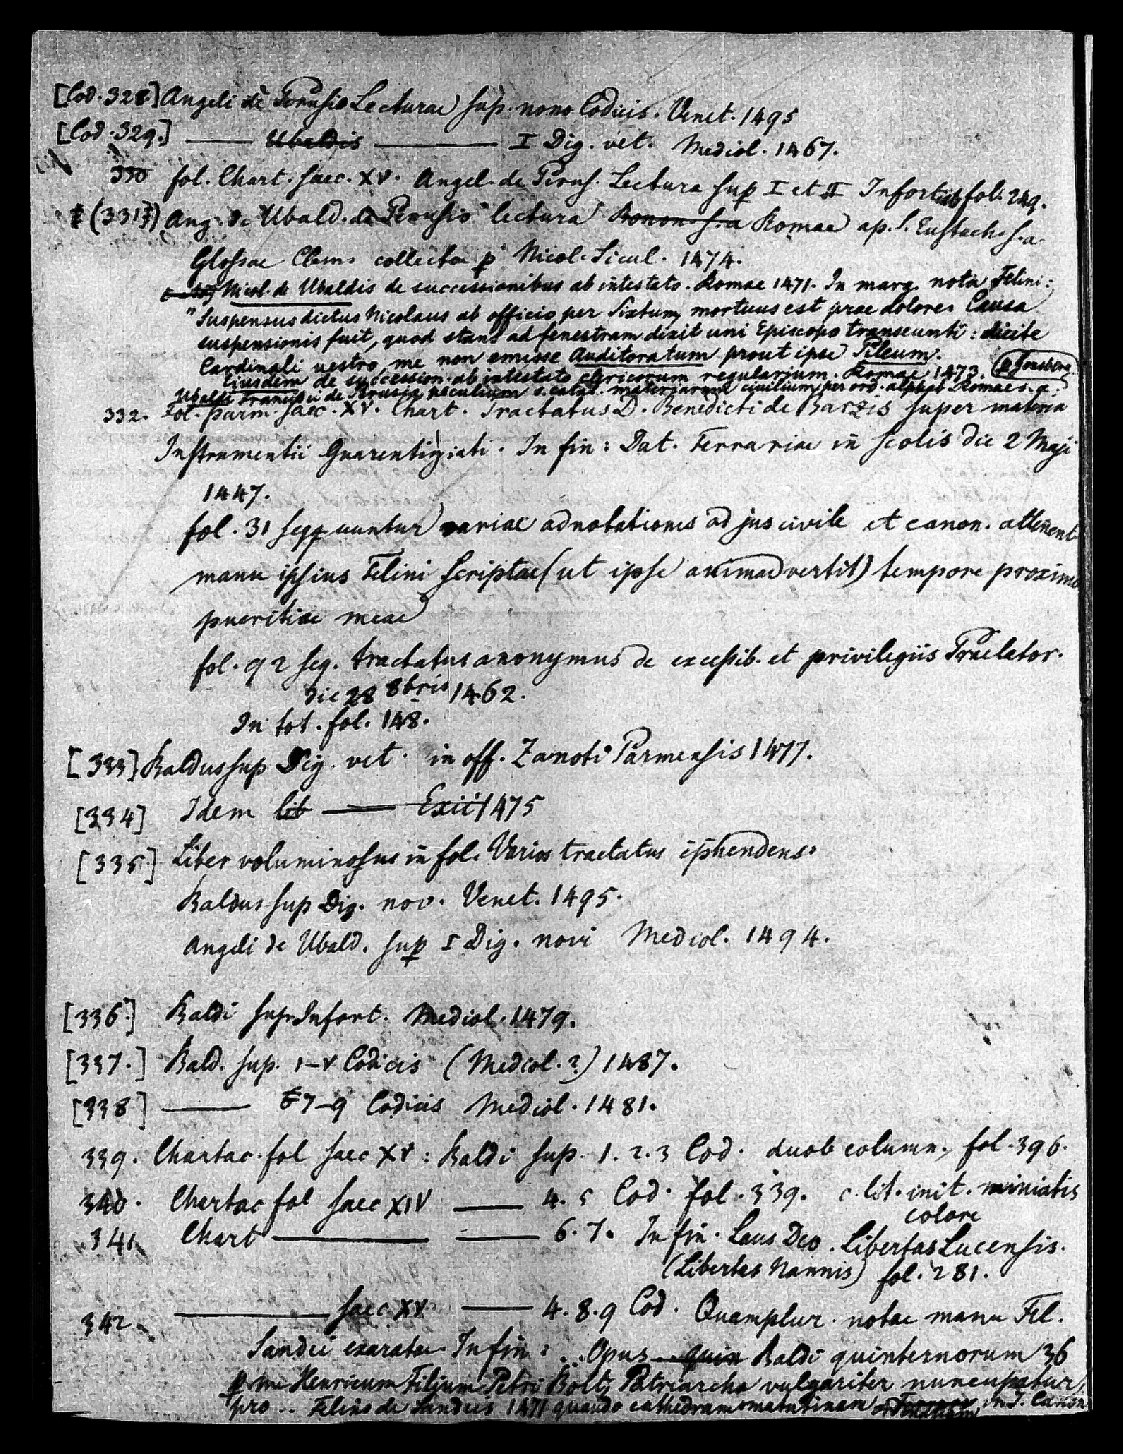 [Cod. 328] Angeli de Perusio Lecturae sup. nono Codicis. Venet. 1495
[Cod. 329.] —— Ubaldis —— I Dig. vet. Mediol. 1467.
330 fol. Chart. saec. XV. Angel. de Perus. Lectura sup I et II Infortiati fol. 249.
(331) Ang. de Ubald. de Perusio lectura Romae ap. S. Eustach. s. a
Glossae Clem. collectae p Nicol. Sicul. 1474.
Nicol. de Ubaldis de successionibus ab intestato. Romae 1471. In marg. nota Felini:
"Suspensus dictus Nicolaus ab officio per Sixtum, mortuus est prae dolore. Causa
suspensionis fuit, quod stans ad fenestram dixit uni Episcopo transeunti: dicite
Cardinali vestro, me non emisse Auditoratum prout ipse Pileum.
Ejusdem de succession. ab intestato clericorum regularium. Romae 1473.
332. fol. parm. saec. XV. Chart. Tractatus D. Benedicti de Barzis super materia
Instrumentii Guarentigiati. In fin: Dat. Ferrariae in scolis die 2 Maji
1447.
fol. 31 seqq uuntur variae adnotationes ad jus civile et canon. attenent.
manu ipsius Felini scriptae (ut ipse animadvertit) tempore proximo
pueritiae meae
fol. 92 seq. tractatus anonymus de excessib. et privilegiis Praelator.
die 28 8bris 1462.
In tot. fol. 148.
[333] Baldus sup Dig. vet. in off. Zanoti Parmensis 1477.
[334] Idem lib —— 1475
[335] Liber voluminosus in fol. Varios tractatus cphendens.
Baldus sup Dig. nov. Venet. 1495.
Angeli de Ubald. sup I Dig. novi Mediol. 1494.
[336.] Baldi sup Infort. Mediol. 1479.
[337.] Bald. sup. 1–V Codicis (Mediol. ?) 1487.
[338] —— 7–9 Codicis Mediol. 1481.
339. Chartac. fol saec XV: Baldi sup. 1. 2. 3 Cod. duob column, fol. 396.
340. Chartac fol saec XIV —— 4. 5 Cod. fol. 339. c. lit. init. miniatis
colore
341. Chart —— —— 6. 7. In fin. Laus Deo. Libertas Lucensis.
(Libertas Nannis) fol. 281.
342. —— saec. XV —— 4. 8. 9 Cod. Quamplur. notae manu Fel.
Sandei exaratae In fin: ... Opus Baldi quinternorum 36
p me Henricum Filium Petri Boltz Patriarcha vulgariter nuncupatur,
pro .. Felino de Sandeis 1471 quando cathedram matutinam